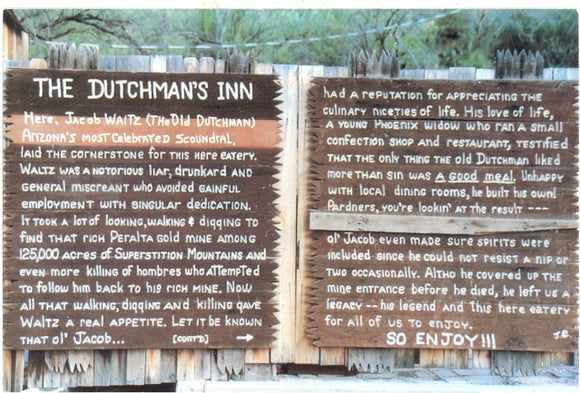 THE DUTCHMAN'S INN
Here, Jacob Waltz (The Old Dutchman)
Arizona's most celebrated scoundral,
laid the cornerstone for this here eatery.
Waltz was a notorious liar, drunkard and
general miscreant who avoided gainful
employment with singular dedication.
It took a lot of looking, walking & digging to
find that rich Peralta gold mine among
125,000 acres of Superstition Mountains and
even more killing of hombres who attempted
to follow him back to his rich mine. Now
all that walking, digging and killing gave
Waltz a real appetite. Let it be known
that ol' Jacob... [cont'd] →
had a reputation for appreciating the
culinary niceties of life. His love of life,
a young Phoenix widow who ran a small
confection shop and restaurant, testified
that the only thing the old Dutchman liked
more than sin was a good meal. Unhappy
with local dining rooms, he built his own!
Pardners, you're lookin' at the result ---
ol' Jacob even made sure spirits were
included since he could not resist a nip or
two occasionally. Altho he covered up the
mine entrance before he died, he left us a
legacy -- his legend and this here eatery
for all of us to enjoy.
SO ENJOY!!!